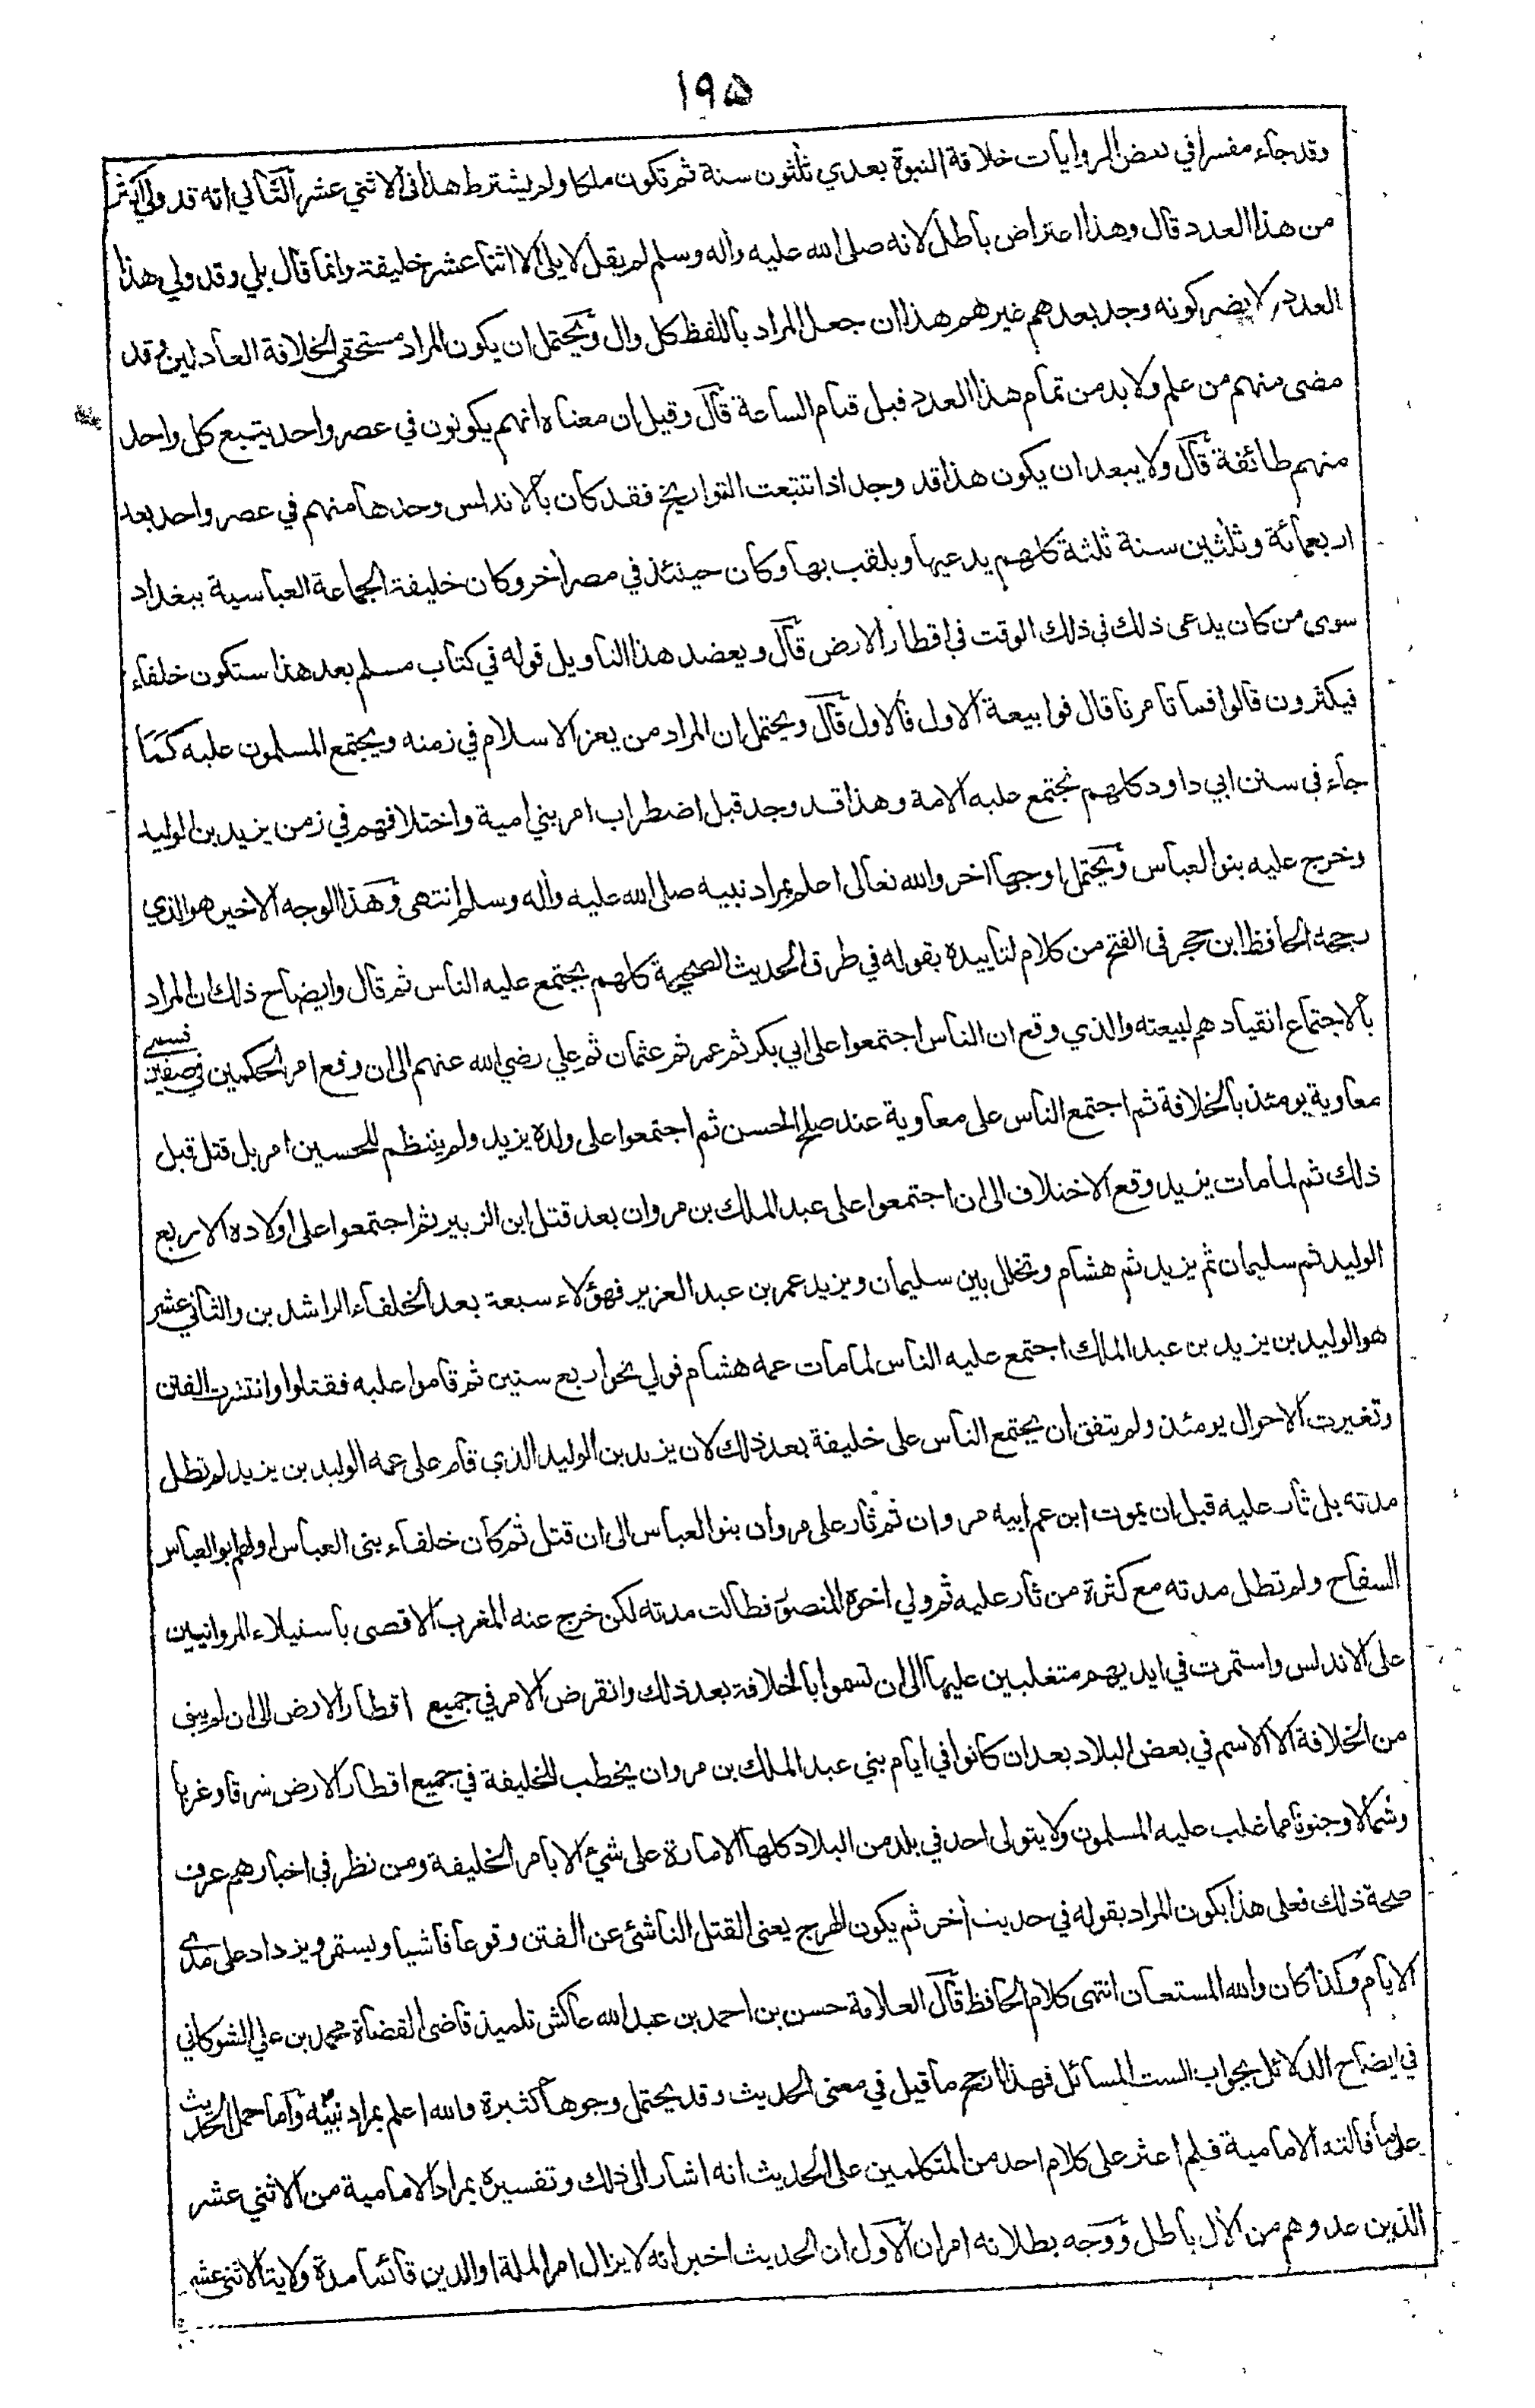 ١٩٥
وقد جاء مفسرا في بعض الروايات خلافة النبوة بعدي ثلثون سنة ثم تكون ملكا ولم يشترط هذا في الاثني عشر الثاني انه قد ولي اكثر
من هذا العدد قال وهذا اعتراض باطل لانه صلى الله عليه واله وسلم لم يقل لا يلي الا اثنا عشر خليفة وانما قال يلي وقد ولي هذا
العدد ولا يضر كونه وجد بعدهم غيرهم هذا ان جعل المراد باللفظ كل وال ويحتمل ان يكون المراد مستحقي الخلافة العادلين وقد
مضى منهم من علم ولا بد من تمام هذا العدد قبل قيام الساعة قال وقيل ان معناه انهم يكونون في عصر واحد يتبع كل واحد
منهم طائفة قال ولا يبعد ان يكون هذا قد وجد اذا تتبعت التواريخ فقد كان بالاندلس وحدها منهم في عصر واحد بعد
اربعمائة وثلثين سنة ثلثة كلهم يدعيها ويلقب بها وكان حينئذ في مصر اخر وكان خليفة الجماعة العباسية ببغداد
سوى من كان يدعى ذلك في ذلك الوقت في اقطار الارض قال ويعضد هذا التاويل قوله في كتاب مسلم بعد هذا ستكون خلفاء
فيكثرون قالوا فما تامرنا قال فوا بيعة الاول فالاول قال ويحتمل ان المراد من يعز الاسلام في زمنه ويجتمع المسلمون عليه كما
جاء في سنن ابي داود كلهم تجتمع عليه الامة وهذا قد وجد قبل اضطراب امر بني امية واختلافهم في زمن يزيد بن الوليد
وخرج عليه بنو العباس ويحتمل اوجها اخر والله تعالى اعلم بمراد نبيه صلى الله عليه واله وسلم انتهى وهذا الوجه الاخير هو الذي
رجحه الحافظ ابن حجر في الفتح من كلام لتاييده بقوله في طرق الحديث الصحيحة كلهم يجتمع عليه الناس ثم قال وايضاح ذلك ان المراد
بالاجتماع انقيادهم لبيعته والذي وقع ان الناس اجتمعوا على ابي بكر ثم عمر ثم عثمان ثم علي رضي الله عنهم الى ان وقع امر الحكمين في صفين فسمي
معاوية يومئذ بالخلافة ثم اجتمع الناس على معاوية عند صلح الحسن ثم اجتمعوا على ولده يزيد ولم ينتظم للحسين امر بل قتل قبل
ذلك ثم لما مات يزيد وقع الاختلاف الى ان اجتمعوا على عبد الملك بن مروان بعد قتل ابن الزبير ثم اجتمعوا على اولاده الاربع
الوليد ثم سليمان ثم يزيد ثم هشام وتخلل بين سليمان ويزيد عمر بن عبد العزيز فهؤلاء سبعة بعد الخلفاء الراشدين والثاني عشر
هو الوليد بن يزيد بن عبد الملك اجتمع عليه الناس لما مات عمه هشام فولي نحو اربع سنين ثم قاموا عليه فقتلوا وانتشرت الفتن
وتغيرت الاحوال يومئذ ولم يتفق ان يجتمع الناس على خليفة بعد ذلك لان يزيد بن الوليد الذي قام على عمه الوليد بن يزيد لم تطل
مدته بل ثار عليه قبل ان يموت ابن عم ابيه مروان ثم ثار على مروان بنو العباس الى ان قتل ثم كان خلفاء بنى العباس اولهم ابو العباس
السفاح ولم تطل مدته مع كثرة من ثار عليه ثم ولي اخوه المنصور فطالت مدته لكن خرج عنه المغرب الاقصى باستيلاء المروانيين
على الاندلس واستمرت في ايديهم متغلبين عليها الى ان تسموا بالخلافة بعد ذلك وانقرض الامر في جميع اقطار الارض الى ان لم يبق
من الخلافة الا الاسم في بعض البلاد بعد ان كانوا في ايام بني عبد الملك بن مروان يخطب للخليفة في جميع اقطار الارض شرقا وغربا
وشمالا وجنوبا مما غلب عليه المسلمون ولا يتولى احد في بلد من البلاد كلها الامارة على شيء الا بامر الخليفة ومن نظر في اخبارهم عرف
صحة ذلك فعلى هذا يكون المراد بقوله في حديث اخر ثم يكون الهرج يعنى القتل الناشئ عن الفتن وقوعا فاشيا ويستمر ويزداد على مدى
الايام وكذا كان والله المستعان انتهى كلام الحافظ قال العلامة حسن بن احمد بن عبد الله عاكش تلميذ قاضي القضاة محمد بن علي الشوكاني
في ايضاح الدلائل بجواب الست المسائل فهذا ارجح ما قيل في معنى الحديث وقد يحتمل وجوها كثيرة والله اعلم بمراد نبيه واما حمل الحديث
على ما قالته الامامية فلم اعثر على كلام احد من المتكلمين على الحديث انه اشار الى ذلك وتفسيره بمراد الامامية من الاثني عشر
الذين عدوهم من الال باطل ووجه بطلانه امران الاول ان الحديث اخبر انه لا يزال امر الملة او الدين قائما مدة ولاية الاثني عشر